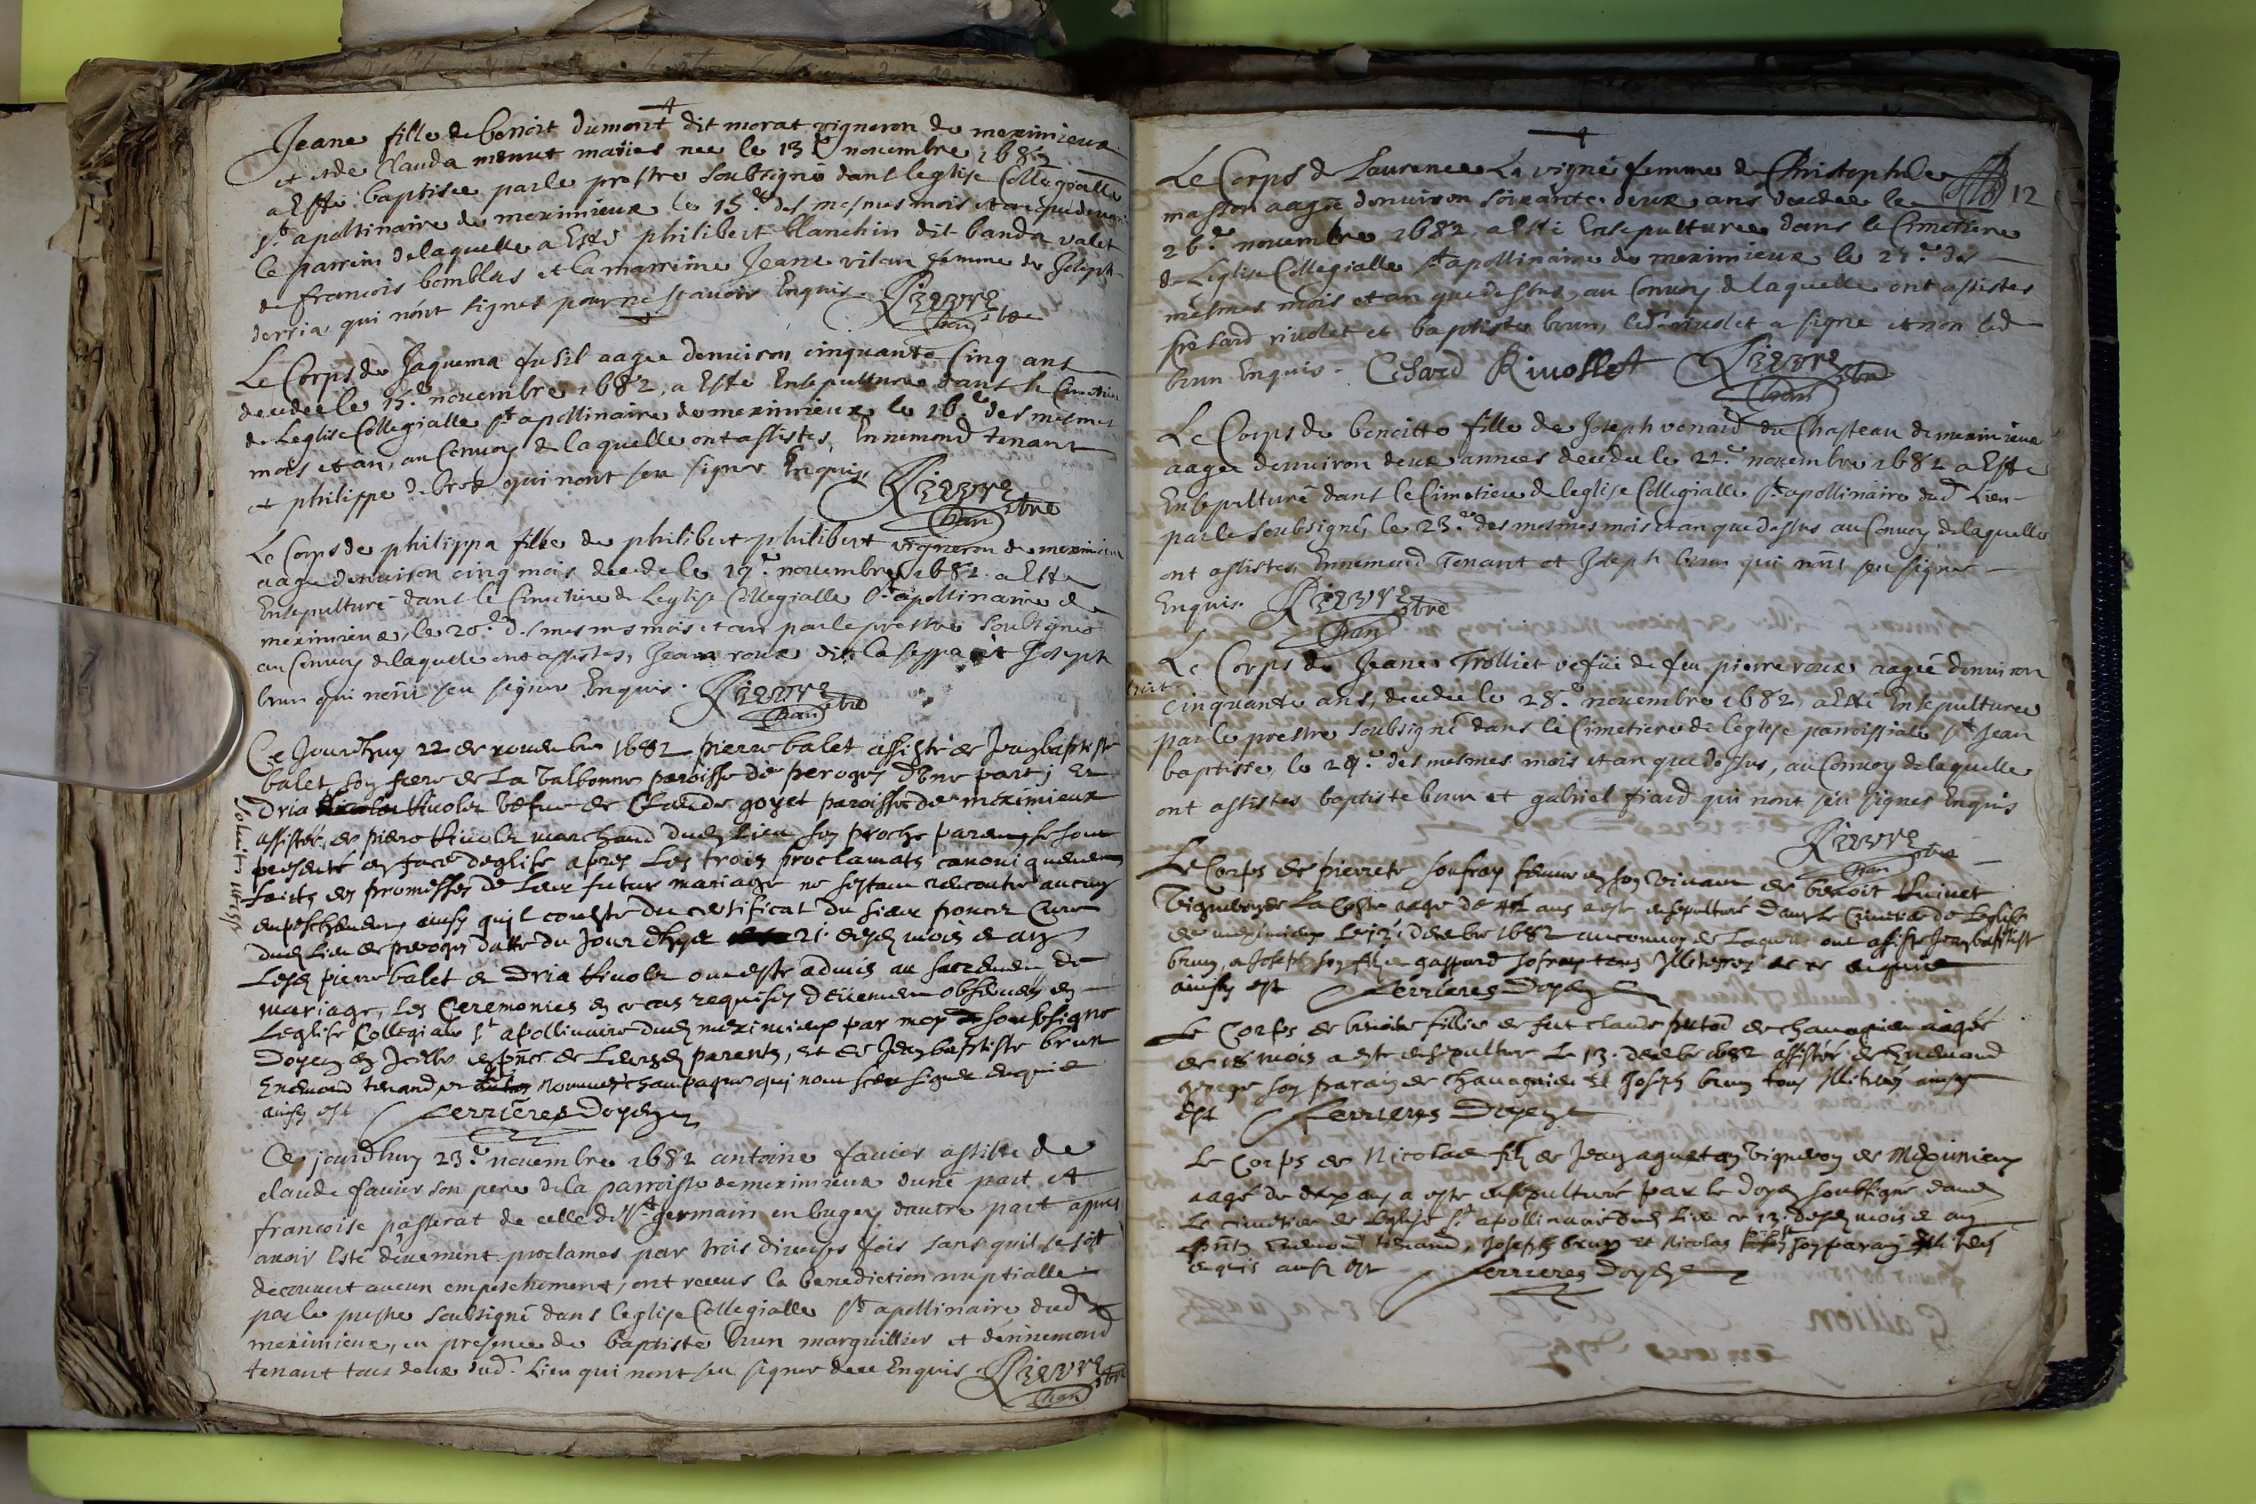 Jeane fille de benoist dumont dit morat vigneron de meximieux
et de Clauda menut mariés nee le 13e novembre 1682
a Esté baptisée par le prestre soubsigné dans leglise Collegialle
st apollinaire de meximieux le 15e des mesmes mois et an que dessus
le parrin delaquelle a Esté philibert blanchin dit banda valet
de francois bomblas et la marrine Jeane femme de Joseph
derria qui nont signes pour ne scavoir Enquis
Le Corps de Jaquema fusil aagée denuiron cinquante Cinq ans
decedee le 15e novembre 1682, a Esté Ensepulturée dans le Cimetiere
de Leglise Collegialle st apollinaire de meximieux le 16e des mesmes
mois et an, au Convoy de laquelle ont assistés, Ennemond tenant
et philippe qui nont seu signer Enquis
Le Corps de philippa fille de philibert philibert vigneron de meximieux
aagee denuiron cinq mois decedee le 19e novembre 1682 a Esté
Ensepulturé dans le Cimetiere de Leglise Collegialle st apollinaire de
meximieux, le 20e des mesmes mois et an par le prestre soubsigné
au Convoy delaquelle ont assistés, Jean roux dit et Joseph
brun qui nont seu signer Enquis.
Ce Jourdhuy 22 de novembre 1682 pierre balet assisté de Jean baptiste
balet son frere de La Valbonne paroisse de peroges d'une part, Et
Dria Rivolet vefue de Claude goyet paroisse de meximieux
assistée de pierre Rivolet marchand dud lieu son proche parent se sont
presenté en face deglise apres Les trois proclamats canoniquement
faits des promesses de Leur futur mariage ne sestant rencontré aucun
enpeschement ainsy quil conste du certificat du sieur poncet Curé
dud lieu de peroges datté du Jour dhyer 21 desd mois et an
Lesd pierre balet et Dria Rivolet ont esté admis au sacrement de
mariage, Les Ceremonies en ce cas requises deuement observées en
Leglise Collegiale st apollinaire dud meximieux par moy soubsigné
Doyen en Icelle en pnce de Leursd parents, et de Jean baptiste brun
Enemond tenand et nommé champagne qui nont sceu signer enquis
ainsy est Ferrieres Doyen
Ce jourdhuy 23e novembre 1682 antoine favier assisté de
claude favier son pere de la parroisse de meximieux dune part et
francoise passerat de celle de st germain en bugey dautre part apres
avoir Esté deuement proclames par trois diverses fois sans quil se soit
decouvert aucun empeschement, ont receus la benediction nuptialle
par le prestre soubsigné dans leglise Collegialle st apollinaire dud
meximieux, en presence de baptiste brun marguillier et dennemond
tenant tous deux dud. Lieu qui nont seu signer deux Enquis
12
Le Corps de Laurence La vigne femme de Christophle
masson aagée denuiron soixante deux ans decedee le
26e novembre 1682, a Esté Ensepulturée dans le Cimetiere
de Leglise Collegialle st apollinaire de meximieux le 27e des
mesmes mois et an que dessus, au Convoy de laquelle ont assistés
sr Esard rivolet et baptiste brun, led rivolet a signé et non led
brun Enquis. Esard Rivollet
Le Corps de benoitte fille de Joseph venard du Chasteau de meximieux
aagee denuiron deux années decedee le 22e novembre 1682 a Esté
Ensepulturé dans le Cimetiere de leglise Collegialle st apollinaire dud Lieu
par le soubsigné, le 23e des mesmes mois et an que dessus au Convoy delaquelle
ont assistés Ennemond Tenant et Joseph brun qui nont seu signer
Enquis.
Le Corps de Jeane Trolliet vefue de feu pierre roux aagée denuiron
cinquante ans, decedee le 28e novembre 1682, a Esté Ensepulturee
par le prestre soubsigné dans le Cimetiere de leglise parroissiale st Jean
baptisse, le 29e des mesmes mois et an que dessus, au Convoy delaquelle
ont assistés baptiste brun et gabriel fiard qui nont seu signer Enquis
Le Corps de pierrete soufray femme en son vivant de benoit
Vigneron de La Coste aagé de ans a esté ensepulturé dans le Cimetiere de Leglise
de meximieux Le decebre 1682 au convoy de Laquelle ont assisté Jean baptiste
brun, et Joseph son fils gaspard sofray tous Illiterés de ce enquis
ainsy est Ferrieres Doyen
Le Corps de benoite fillie de feu claude de chavagnieu aagée
de 18 mois a esté ensepulturé Le 13. decebre 1682 assisté de Enemond
son parain de chavagnieu et Joseph brun tous Illiterés ainsy
est Ferrieres Doyen
Le Corps de Nicolas fils de Jean Vigneron de Meximieux
aagé de dix ans a esté ensepulturé par le Doyen soubsigné dans
Le cimetiere de Leglise st apollinaire dud Lieu ce 13. desd mois et an
psnts Enemond tenand, Joseph brun et Nicolas son parain
enquis ainsy est Ferrieres Doyen